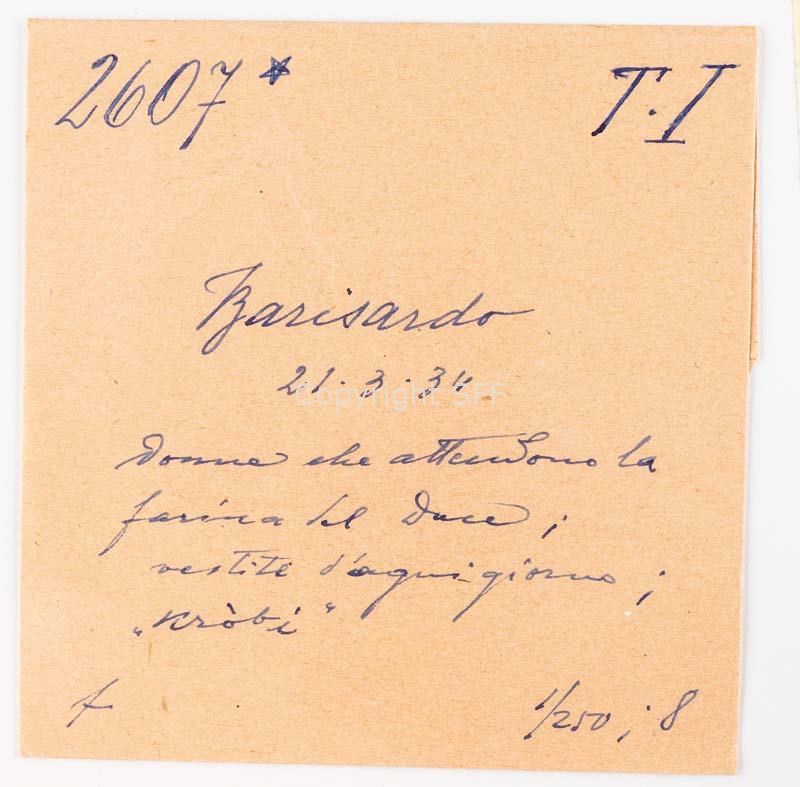 2607* T.I
Barisardo
21.3.34
Copyright SFF
donne che attendono la
farina del Duce;
vestite d'ognigiorno;
„kròbi"
f 1/250; 8